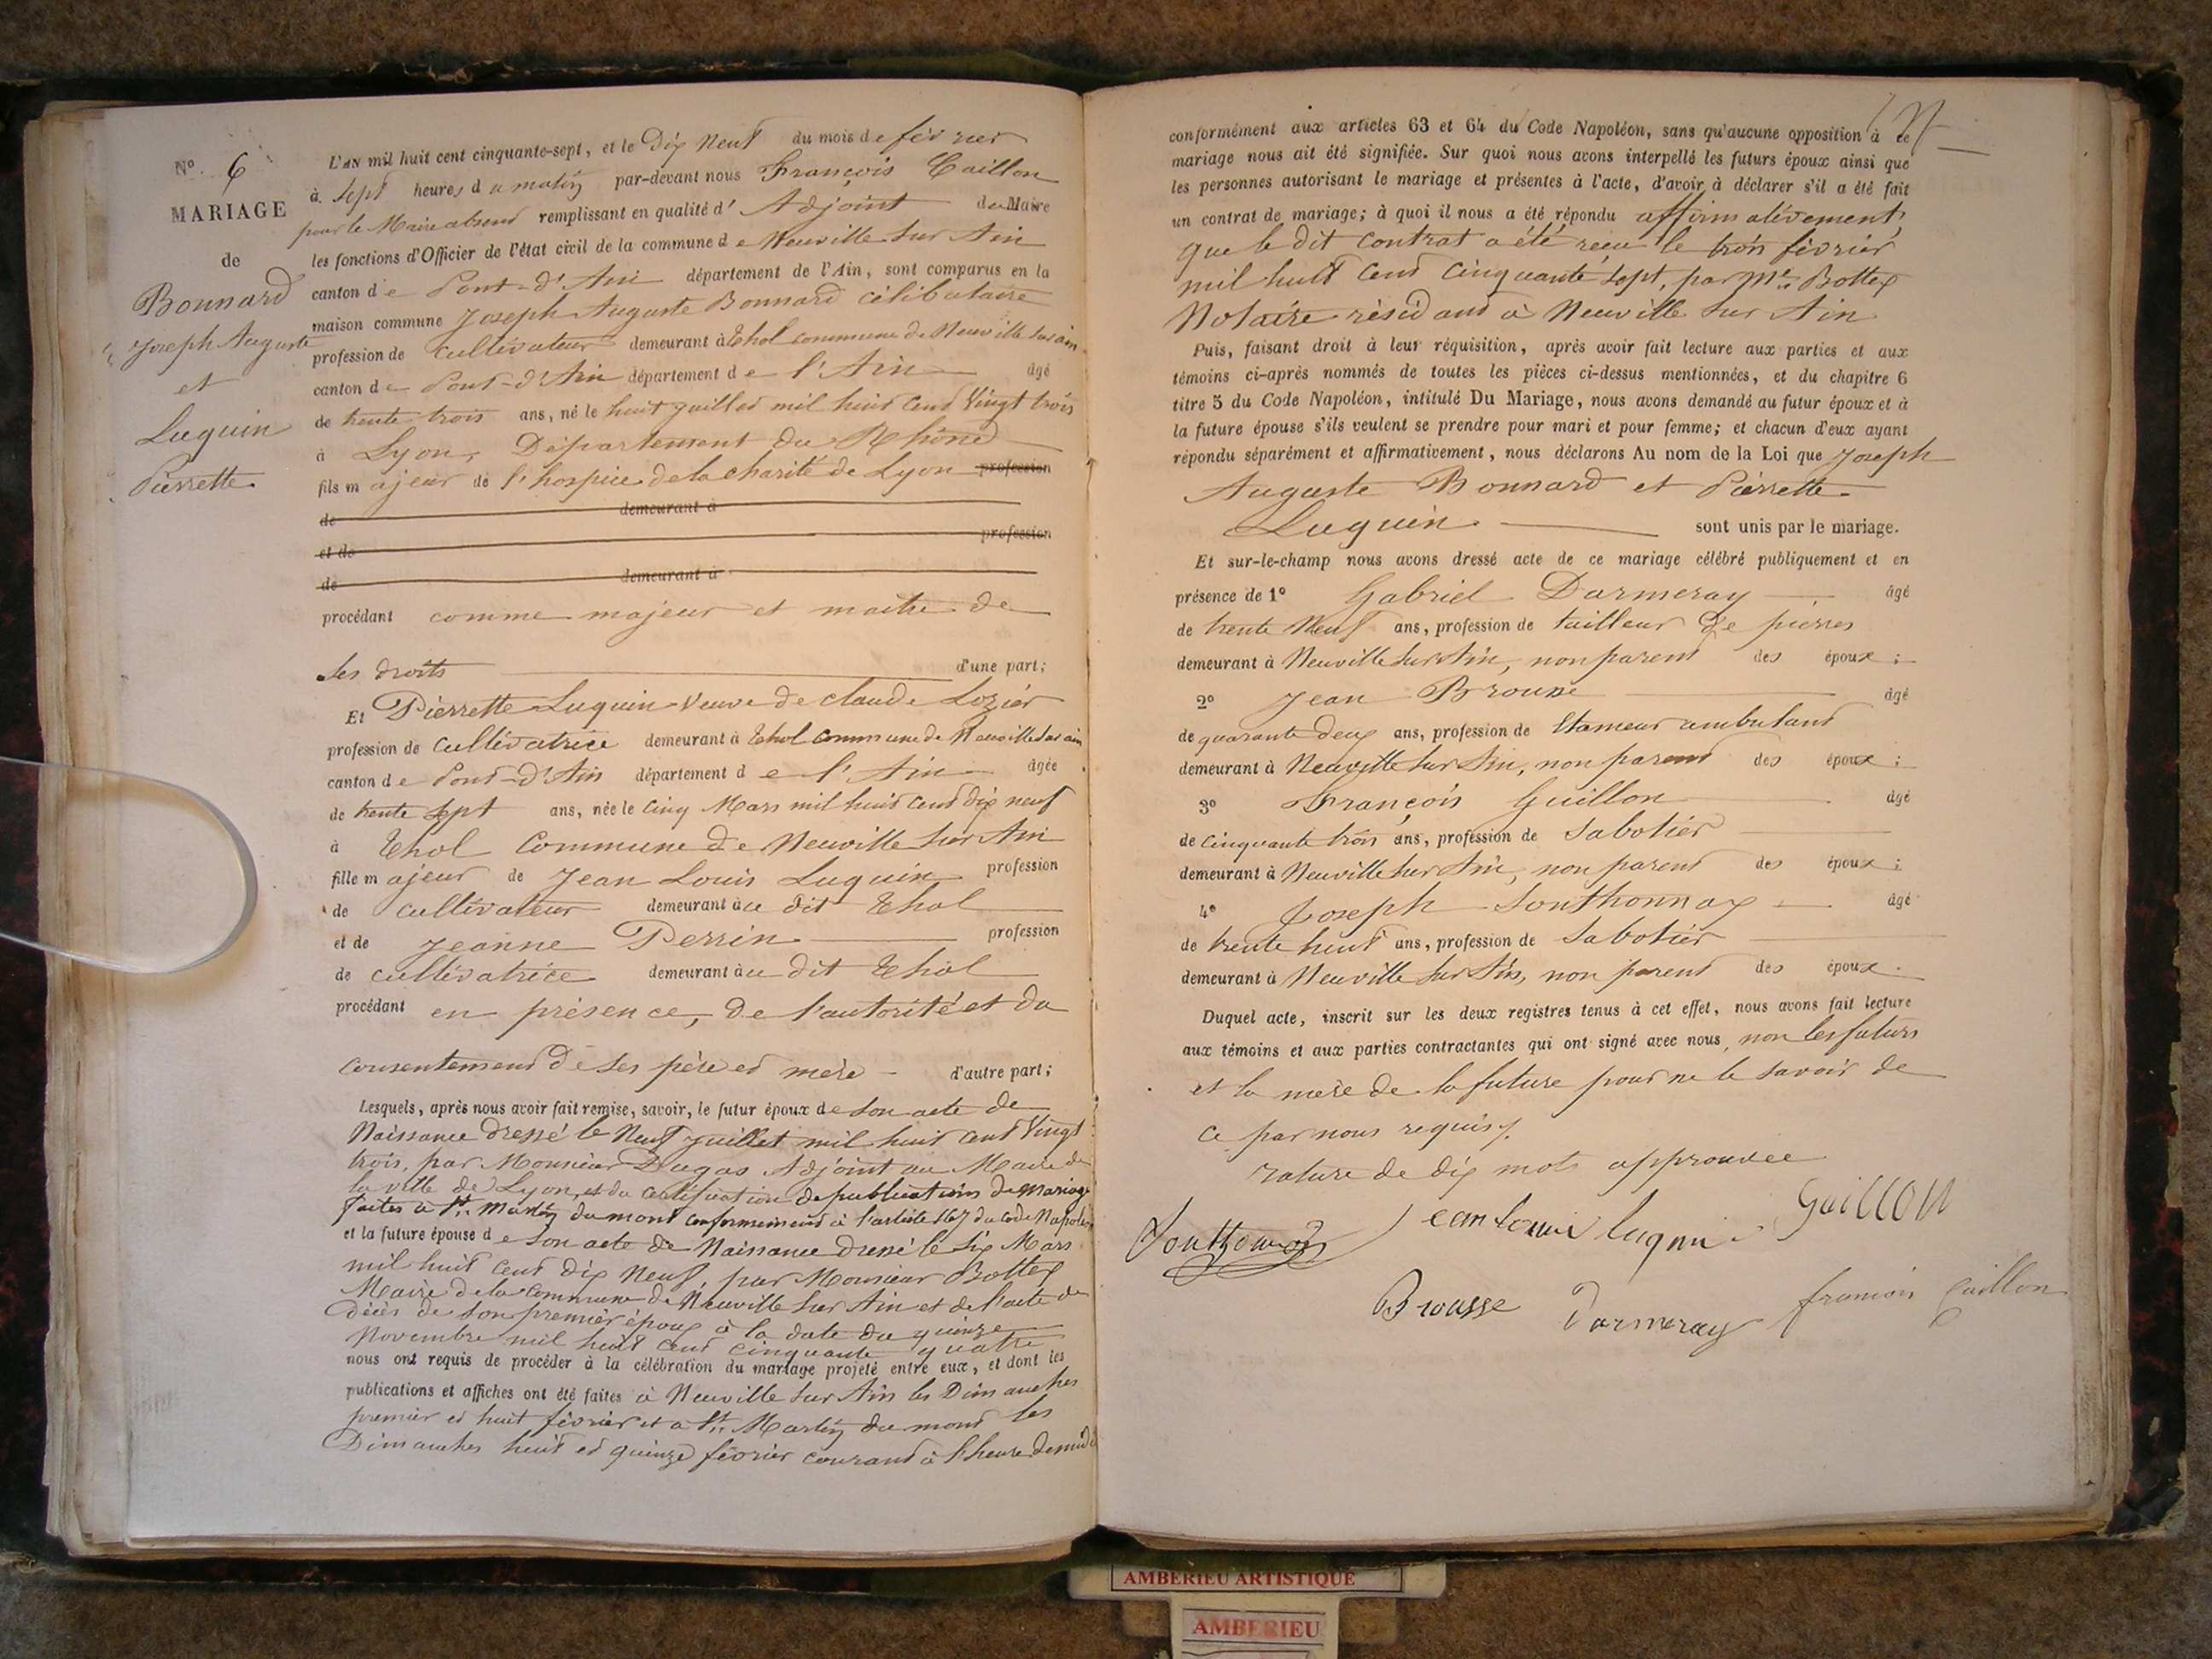 N°. 6
MARIAGE
de
Bonnard
Joseph Auguste
et
Luquin
Pierrette
L'AN mil huit cent cinquante-sept, et le Dix Neuf du mois de février
à Sept heures du matin par-devant nous François Caillon
pour le Maire absend remplissant en qualité d'Adjoint du Maire
les fonctions d'Officier de l'état civil de la commune de Neuville sur Ain
canton de Pont-d'Ain département de l'Ain, sont comparus en la
maison commune Joseph Auguste Bonnard célibataire
profession de Cultivateur demeurant à Thol commune de Neuville sur ain
canton de Pont-d'Ain département de l'Ain âgé
de trente trois ans, né le huit juillet mil huit cent Vingt trois
à Lyon, Département du Rhône
fils majeur de l'hospice de la charité de Lyon profession
de demeurant à
et de profession
de demeurant à
procédant comme majeur et maitre de
Ses droits d'une part;
Et Pierrette Luquin Veuve de Claude Lozier
profession de Cultivatrice demeurant à Thol commune de Neuville sur ain
canton de Pont-d'Ain département de l'Ain âgée
de trente Sept ans, née le Cinq Mars mil huit cent dix neuf
à Thol Commune de Neuville sur Ain
fille majeur de Jean Louis Luquin profession
de Cultivateur demeurant au dit Thol
et de Jeanne Perrin profession
de Cultivatrice demeurant au dit Thol
procédant en présence, de l'autorité et du
Consentement de ses père et mère d'autre part;
Lesquels, après nous avoir fait remise, savoir, le futur époux de Son acte de
Naissance dressé le Neuf juillet mil huit cent Vingt
trois, par Monsieur Dugas Adjoint au Maire de
la ville de Lyon, et du certification de publications de mariage
faites à St. Martin du mont conformément à l'article 167 du code Napoléon
et la future épouse de Son acte de Naissance dressé le Six Mars
mil huit cent dix Neuf, par Monsieur Bottex
Maire de la Commune de Neuville sur Ain et de l'acte de
décès de Son premier époux à la date du quinze
Novembre mil huit cent cinquante quatre
nous ont requis de procéder à la célébration du mariage projeté entre eux, et dont les
publications et affiches ont été faites à Neuville sur Ain les Dimanches
premier et huit février et à St. Martin du mont les
Dimanches huit et quinze février courant à l'heure de midi
conformément aux articles 63 et 64 du Code Napoléon, sans qu'aucune opposition à ce
mariage nous ait été signifiée. Sur quoi nous avons interpellé les futurs époux ainsi que
les personnes autorisant le mariage et présentes à l'acte, d'avoir à déclarer s'il a été fait
un contrat de mariage; à quoi il nous a été répondu affirmativement
que le dit contrat a été reçu le trois février
mil huit cent cinquante sept, par Me. Bottex
Notaire résidant à Neuville sur Ain
Puis, faisant droit à leur réquisition, après avoir fait lecture aux parties et aux
témoins ci-après nommés de toutes les pièces ci-dessus mentionnées, et du chapitre 6
titre 5 du Code Napoléon, intitulé Du Mariage, nous avons demandé au futur époux et à
la future épouse s'ils veulent se prendre pour mari et pour femme; et chacun d'eux ayant
répondu séparément et affirmativement, nous déclarons Au nom de la Loi que Joseph
Auguste Bonnard et Pierrette
Luquin sont unis par le mariage.
Et sur-le-champ nous avons dressé acte de ce mariage célébré publiquement et en
présence de 1° Gabriel Darmeray âgé
de trente Neuf ans, profession de tailleur de pierres
demeurant à Neuville sur Ain, non parent des époux;
2° Jean Brousse âgé
de quarante deux ans, profession de Etameur ambulant
demeurant à Neuville sur Ain, non parent des époux;
3° François Guillon âgé
de Cinquante trois ans, profession de Sabotier
demeurant à Neuville sur Ain, non parent des époux;
4° Joseph Southonnax âgé
de trente huit ans, profession de Sabotier
demeurant à Neuville sur Ain, non parent des époux.
Duquel acte, inscrit sur les deux registres tenus à cet effet, nous avons fait lecture
aux témoins et aux parties contractantes qui ont signé avec nous, non les futurs
et la mère de la future pour ne le savoir de
ce par nous requis.
rature de dix mots approuvée
Southonnax Jean Louis Luquin Guillon
Brousse Darmeray francois Caillon
AMBERIEU ARTISTIQUE
AMBERIEU